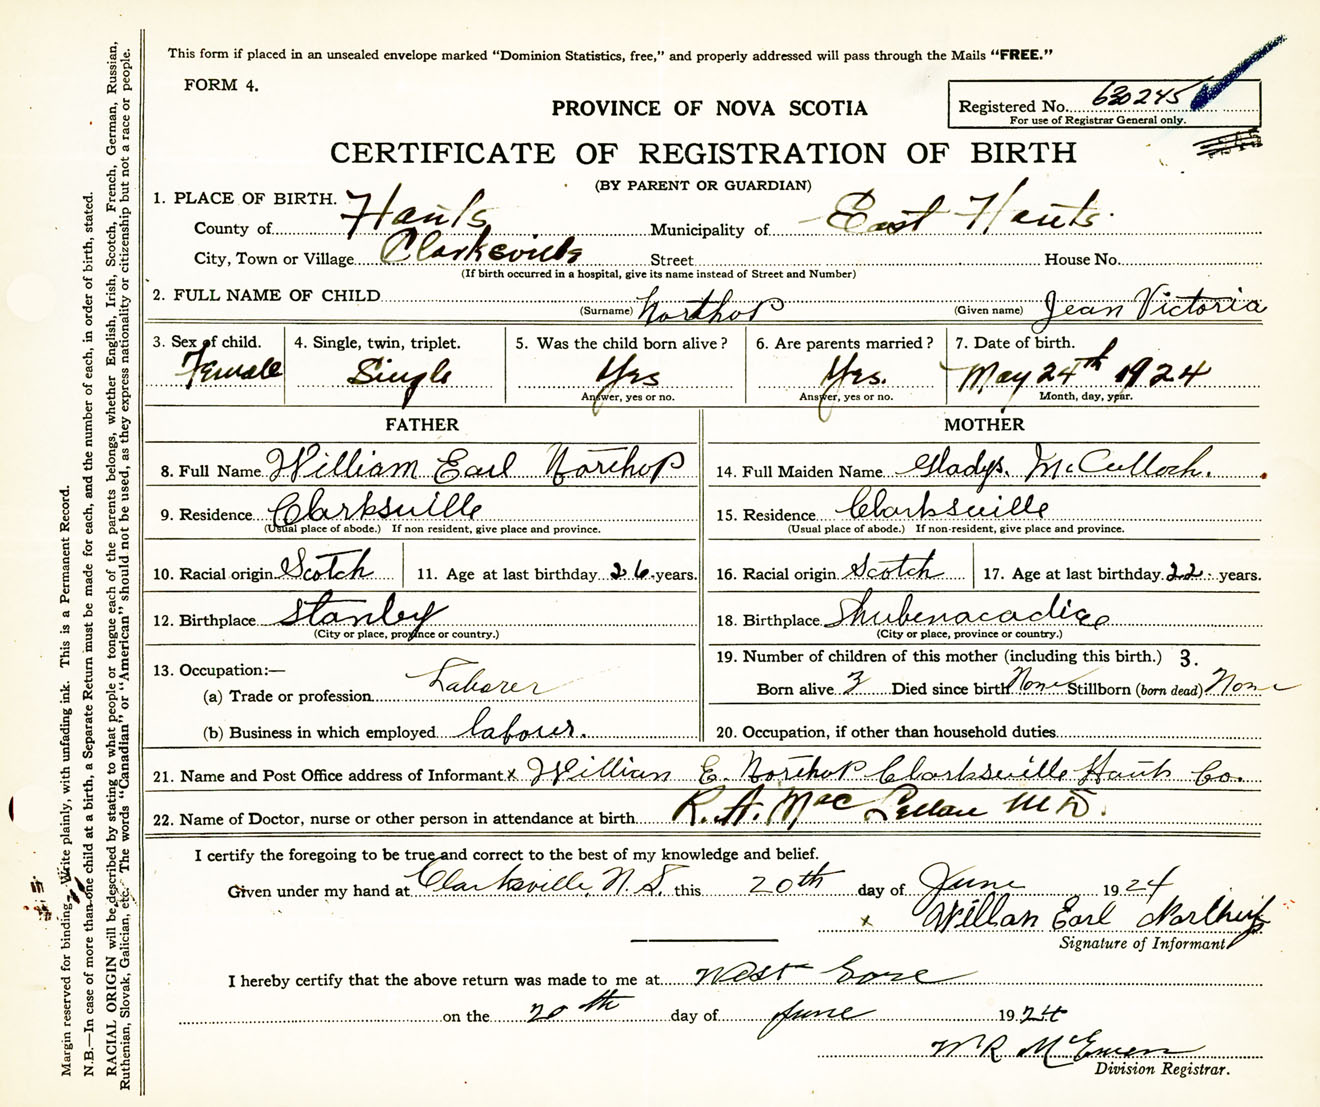 This form if placed in an unsealed envelope marked "Dominion Statistics, free," and properly addressed will pass through the Mails "FREE."
FORM 4.
PROVINCE OF NOVA SCOTIA
Registered No. 630245
For use of Registrar General only.
CERTIFICATE OF REGISTRATION OF BIRTH
(BY PARENT OR GUARDIAN)
1. PLACE OF BIRTH.
County of Hants Municipality of East Hants
City, Town or Village Clarksville Street House No.
(If birth occurred in a hospital, give its name instead of Street and Number)
2. FULL NAME OF CHILD (Surname) Northop (Given name) Jean Victoria
3. Sex of child. 4. Single, twin, triplet. 5. Was the child born alive? 6. Are parents married? 7. Date of birth.
Female Single Yes Yes. May 24th 1924
Answer, yes or no. Answer, yes or no. Month, day, year.
FATHER MOTHER
8. Full Name William Earl Northop 14. Full Maiden Name Gladys. McCulloch.
9. Residence Clarksville 15. Residence Clarksville
(Usual place of abode.) If non resident, give place and province. (Usual place of abode.) If non-resident, give place and province.
10. Racial origin Scotch 11. Age at last birthday 26 years. 16. Racial origin Scotch 17. Age at last birthday 22 years.
12. Birthplace Stanley 18. Birthplace Shubenacadie
(City or place, province or country.) (City or place, province or country.)
13. Occupation:— 19. Number of children of this mother (including this birth.) 3.
(a) Trade or profession Laborer Born alive 3 Died since birth None Stillborn (born dead) None
(b) Business in which employed labour. 20. Occupation, if other than household duties
21. Name and Post Office address of Informant x William E. Northop Clarksville Hants Co.
22. Name of Doctor, nurse or other person in attendance at birth R. A. MacLellan MD.
I certify the foregoing to be true and correct to the best of my knowledge and belief.
Given under my hand at Clarksville, N.S. this 20th day of June 1924
x William Earl Northup
Signature of Informant
I hereby certify that the above return was made to me at West Gore
on the 20th day of June 1924
W R McEwen
Division Registrar.
Margin reserved for binding. Write plainly, with unfading ink. This is a Permanent Record.
N.B.—In case of more than one child at a birth, a Separate Return must be made for each, and the number of each, in order of birth, stated.
RACIAL ORIGIN will be described by stating to what people or tongue each of the parents belongs, whether English, Irish, Scotch, French, German, Russian,
Ruthenian, Slovak, Galician, etc. The words "Canadian" or "American" should not be used, as they express nationality or citizenship but not a race or people.